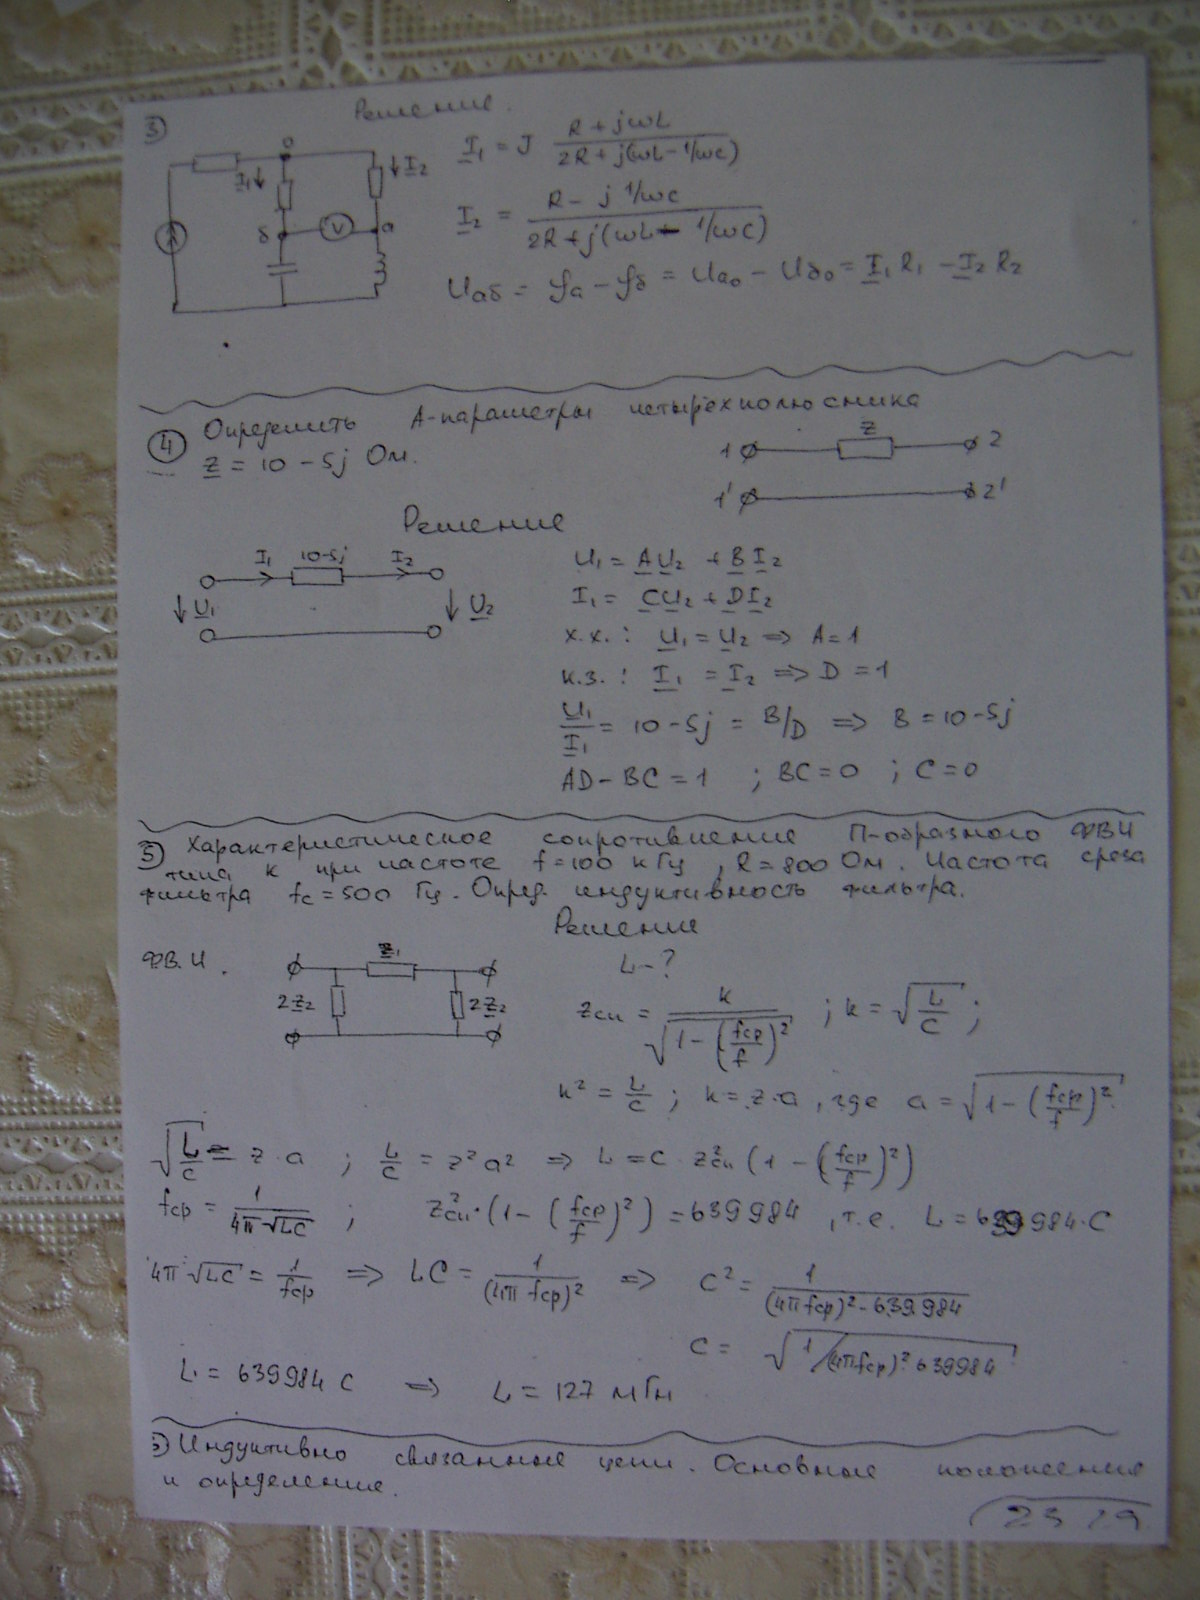 3) Решение.
0
I₁ ↓
↓ I₂
б
V
а
I₁ = J (R + jωL)/(2R + j(ωL - 1/ωC))
I₂ = (R - j 1/ωC)/(2R + j(ωL - 1/ωC))
Uаб = φа - φб = Uа₀ - Uб₀ = I₁ R₁ - I₂ R₂
4) Определить А-параметры четырехполюсника
Z = 10 - 5j Ом.
Z
1 2
1' 2'
Решение
I₁ 10-5j I₂
U₁ U₂
U₁ = AU₂ + BI₂
I₁ = CU₂ + DI₂
х.х. : U₁ = U₂ => A = 1
к.з. : I₁ = I₂ => D = 1
U₁/I₁ = 10 - 5j = B/D => B = 10 - 5j
AD - BC = 1 ; BC = 0 ; C = 0
5) Характеристическое сопротивление П-образного ФВЧ
типа к при частоте f = 100 кГц, R = 800 Ом. Частота среза
фильтра fc = 500 Гц. Опред. индуктивность фильтра.
Решение
ФВЧ.
Z₁
2Z₂ 2Z₂
L - ?
Zсп = k/√(1 - (fср/f)²) ; k = √(L/C) ;
k² = L/C ; k = z·a, где a = √(1 - (fср/f)²)
√(L/C) = z·a ; L/C = z²a² => L = C · Zсп² (1 - (fср/f)²)
fср = 1/(4π√LC) ; Zсп² · (1 - (fср/f)²) = 639984, т.е. L = 639984·C
4π√LC = 1/fср => LC = 1/(4π fср)² => C² = 1/((4πfср)² · 639984)
C = √(1/(4πfср)² · 639984)
L = 639984 C => L = 127 мГн
Индуктивно связанные цепи. Основные положения
и определения.
23 29